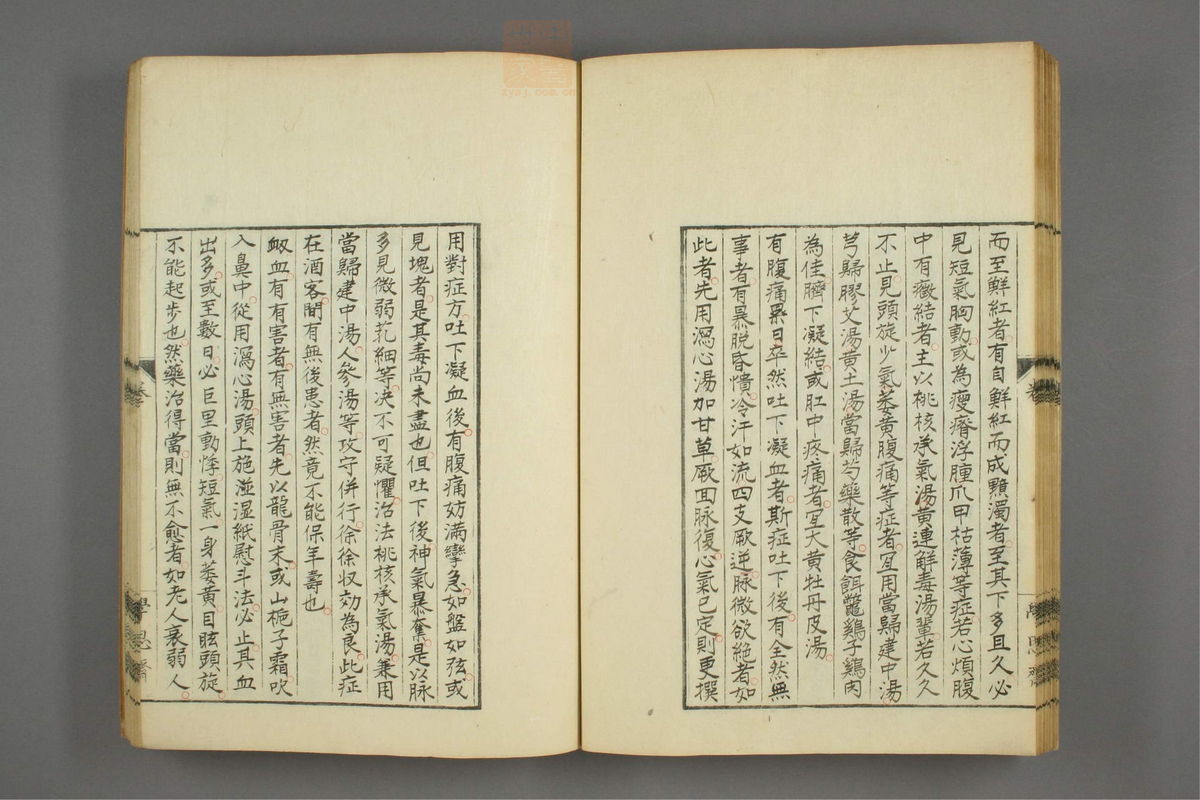 而至鮮紅者有自鮮紅而成黯濁者至其下多且久必
見短氣胸動或為瘦瘠浮腫爪甲枯薄等症若心煩腹
中有癥結者主以桃核承氣湯黃連解毒湯輩若久久
不止見頭旋少氣萎黃腹痛等症者宜用當歸建中湯
芎歸膠艾湯黃土湯當歸芍藥散等食餌鼈鷄子鷄肉
為佳臍下凝結或肛中疼痛者宜大黃牡丹皮湯
有腹痛暴日卒然吐下凝血者斯症吐下後有全然無
事者有暴脫昏憒冷汗如流四支厥逆脉微欲絕者如
此者先用瀉心湯加甘草厥回脉復心氣已定則更撰
用對症方吐下凝血後有腹痛妨滿攣急如盤如弦或
見塊者是其毒尚未盡也但吐下後神氣暴奪是以脉
多見微弱芤細等决不可疑懼治法桃核承氣湯兼用
當歸建中湯人參湯等攻守併行徐徐収効為良此症
在酒客間有無後患者然竟不能保年壽也
衂血有有害者有無害者先以龍骨末或山梔子霜吹
入鼻中從用瀉心湯頭上施湿紙慰斗法必止其血
出多或至數日必巨里動悸短氣一身萎黃目眩頭旋
不能起步也然藥治得當則無不愈者如老人衰弱人
卷
學思齋